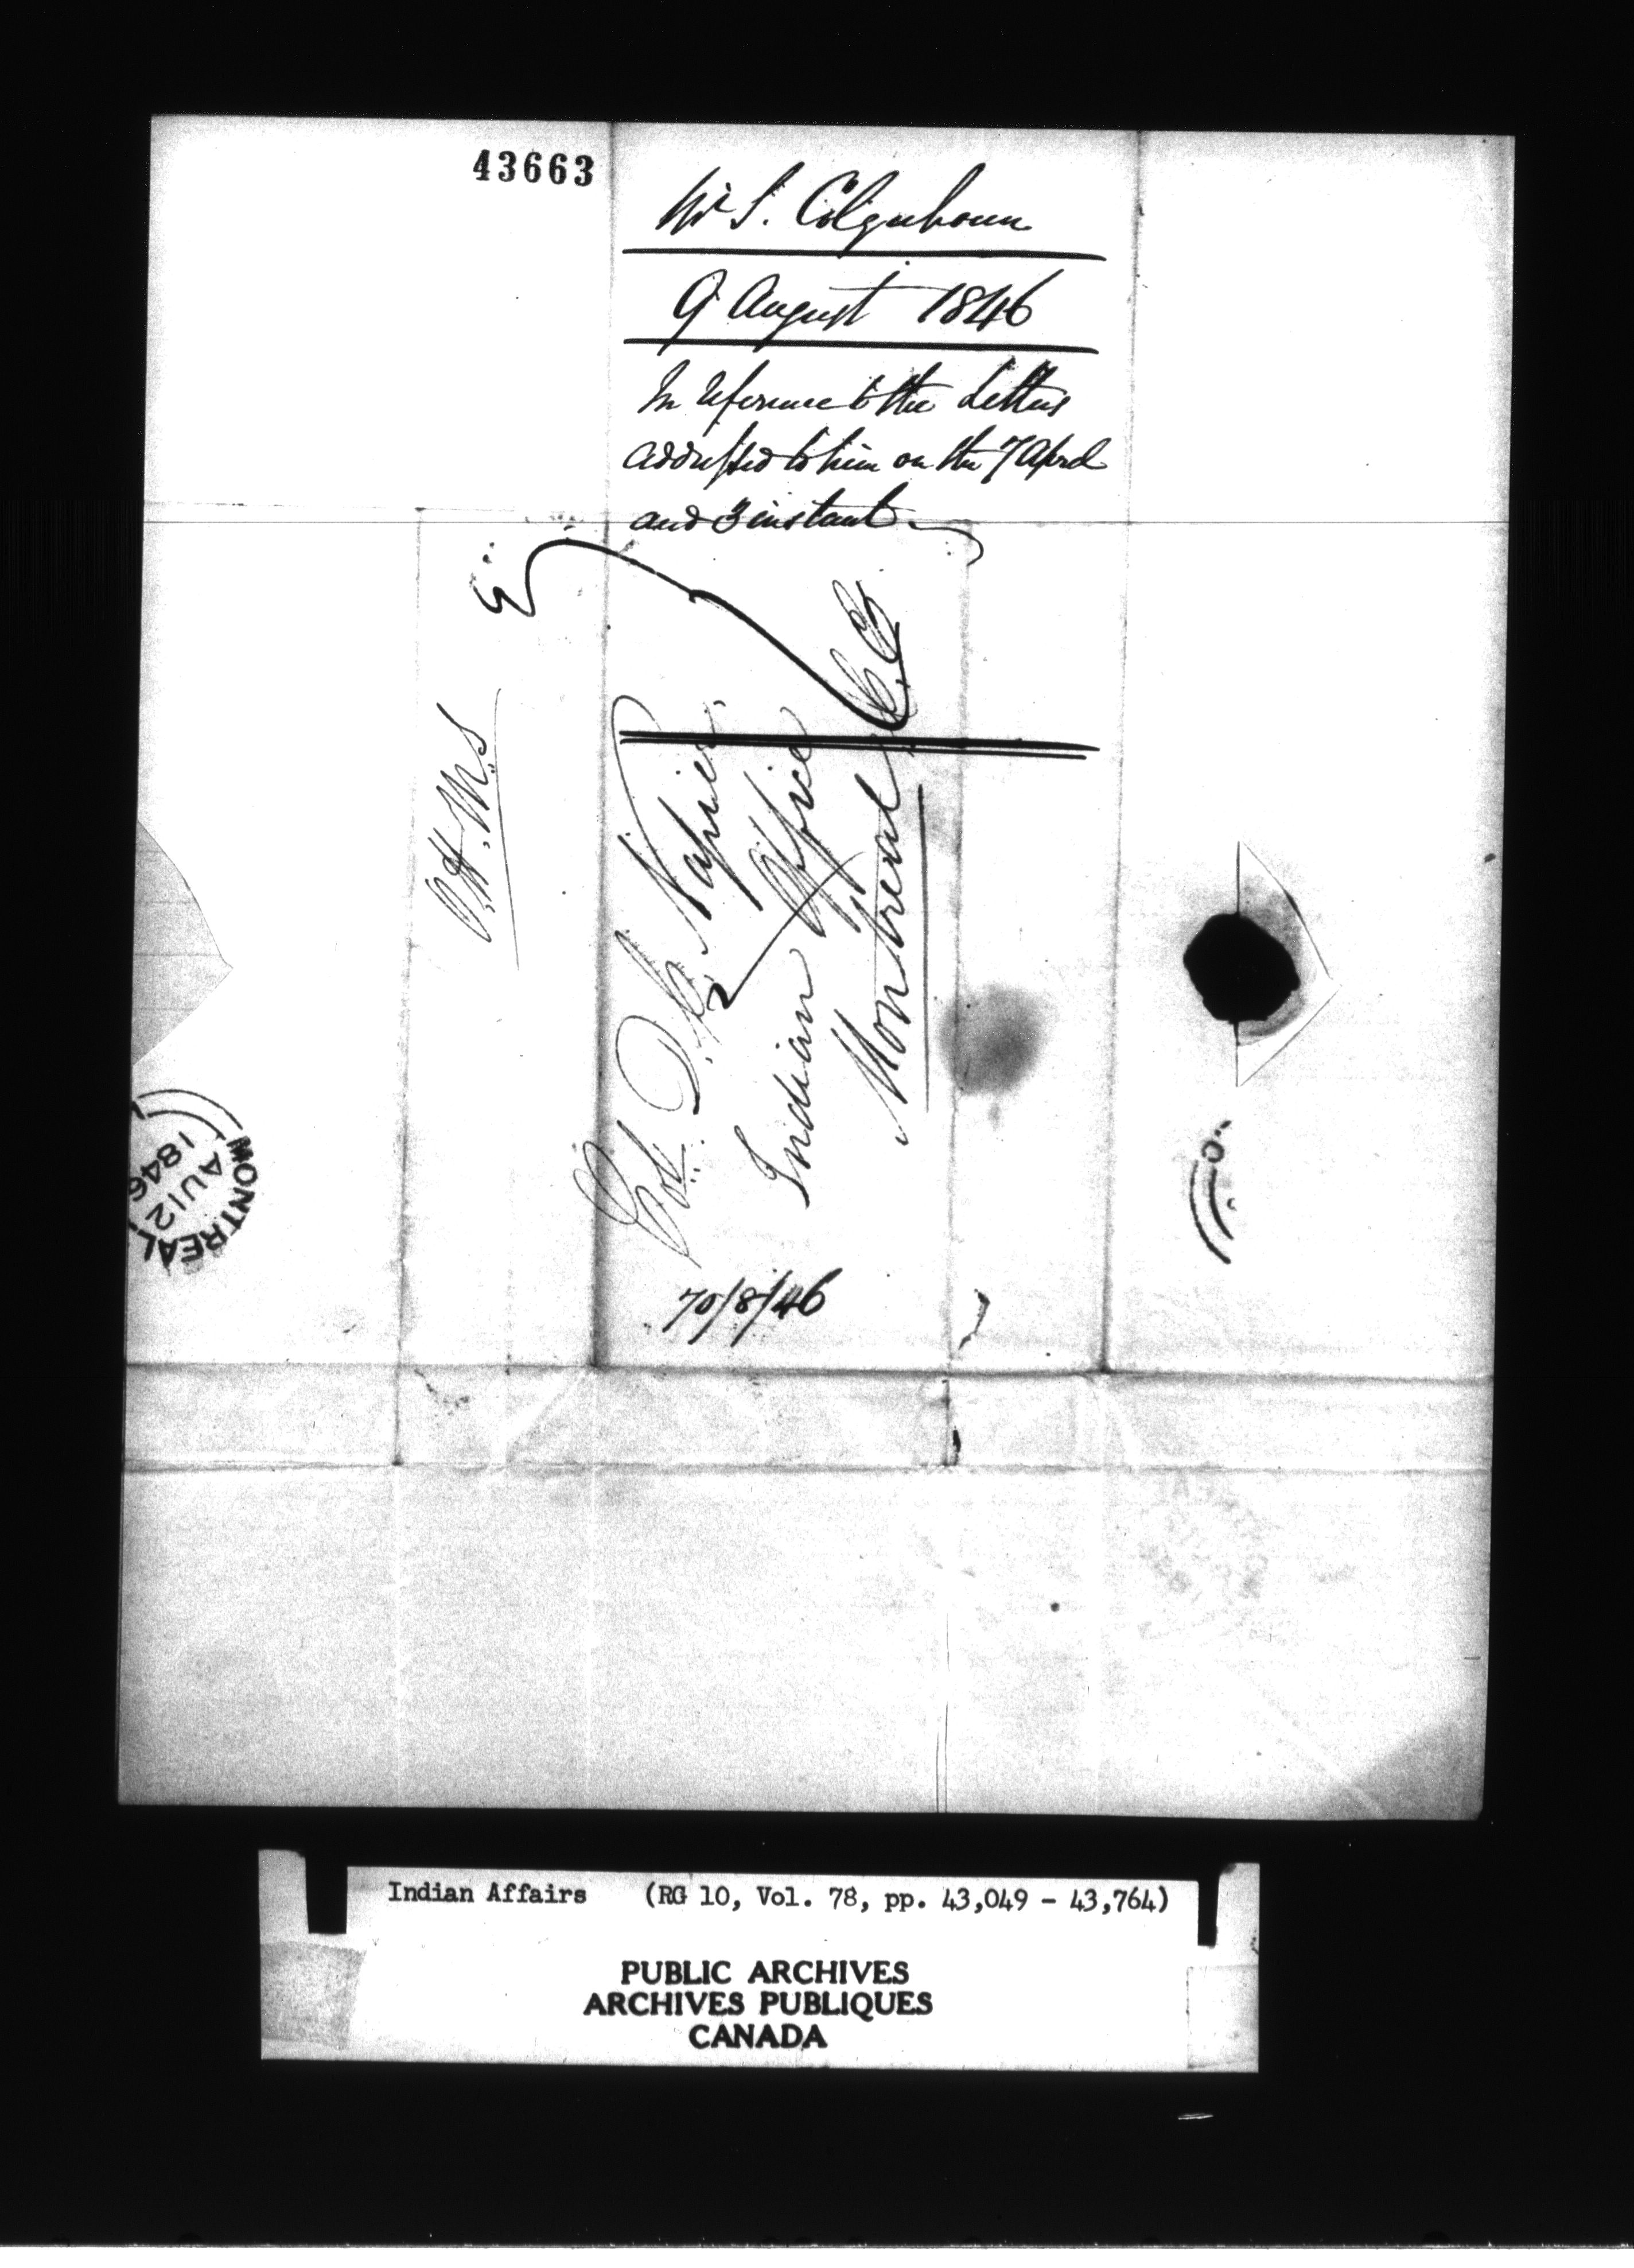 43663
Mr S. Colquhoun
9 August 1846
In reference to the Letters
addressed to him on the 7 April
and 3 instant
O.H.M.S
Col. D. C. Napier,
Indian Office
Montreal C.E
70/8/46
MONTREAL
AU 12
1846
Indian Affairs (RG 10, Vol. 78, pp. 43,049 - 43,764)
PUBLIC ARCHIVES
ARCHIVES PUBLIQUES
CANADA